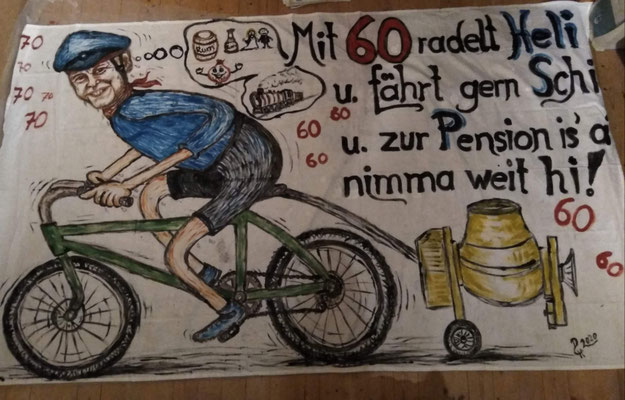 70
70
70 70
70
Rum
Mit 60 radelt Heli
u. fährt gern Schi
u. zur Pension is' a
nimma weit hi!
60 60
60
60
60
2020